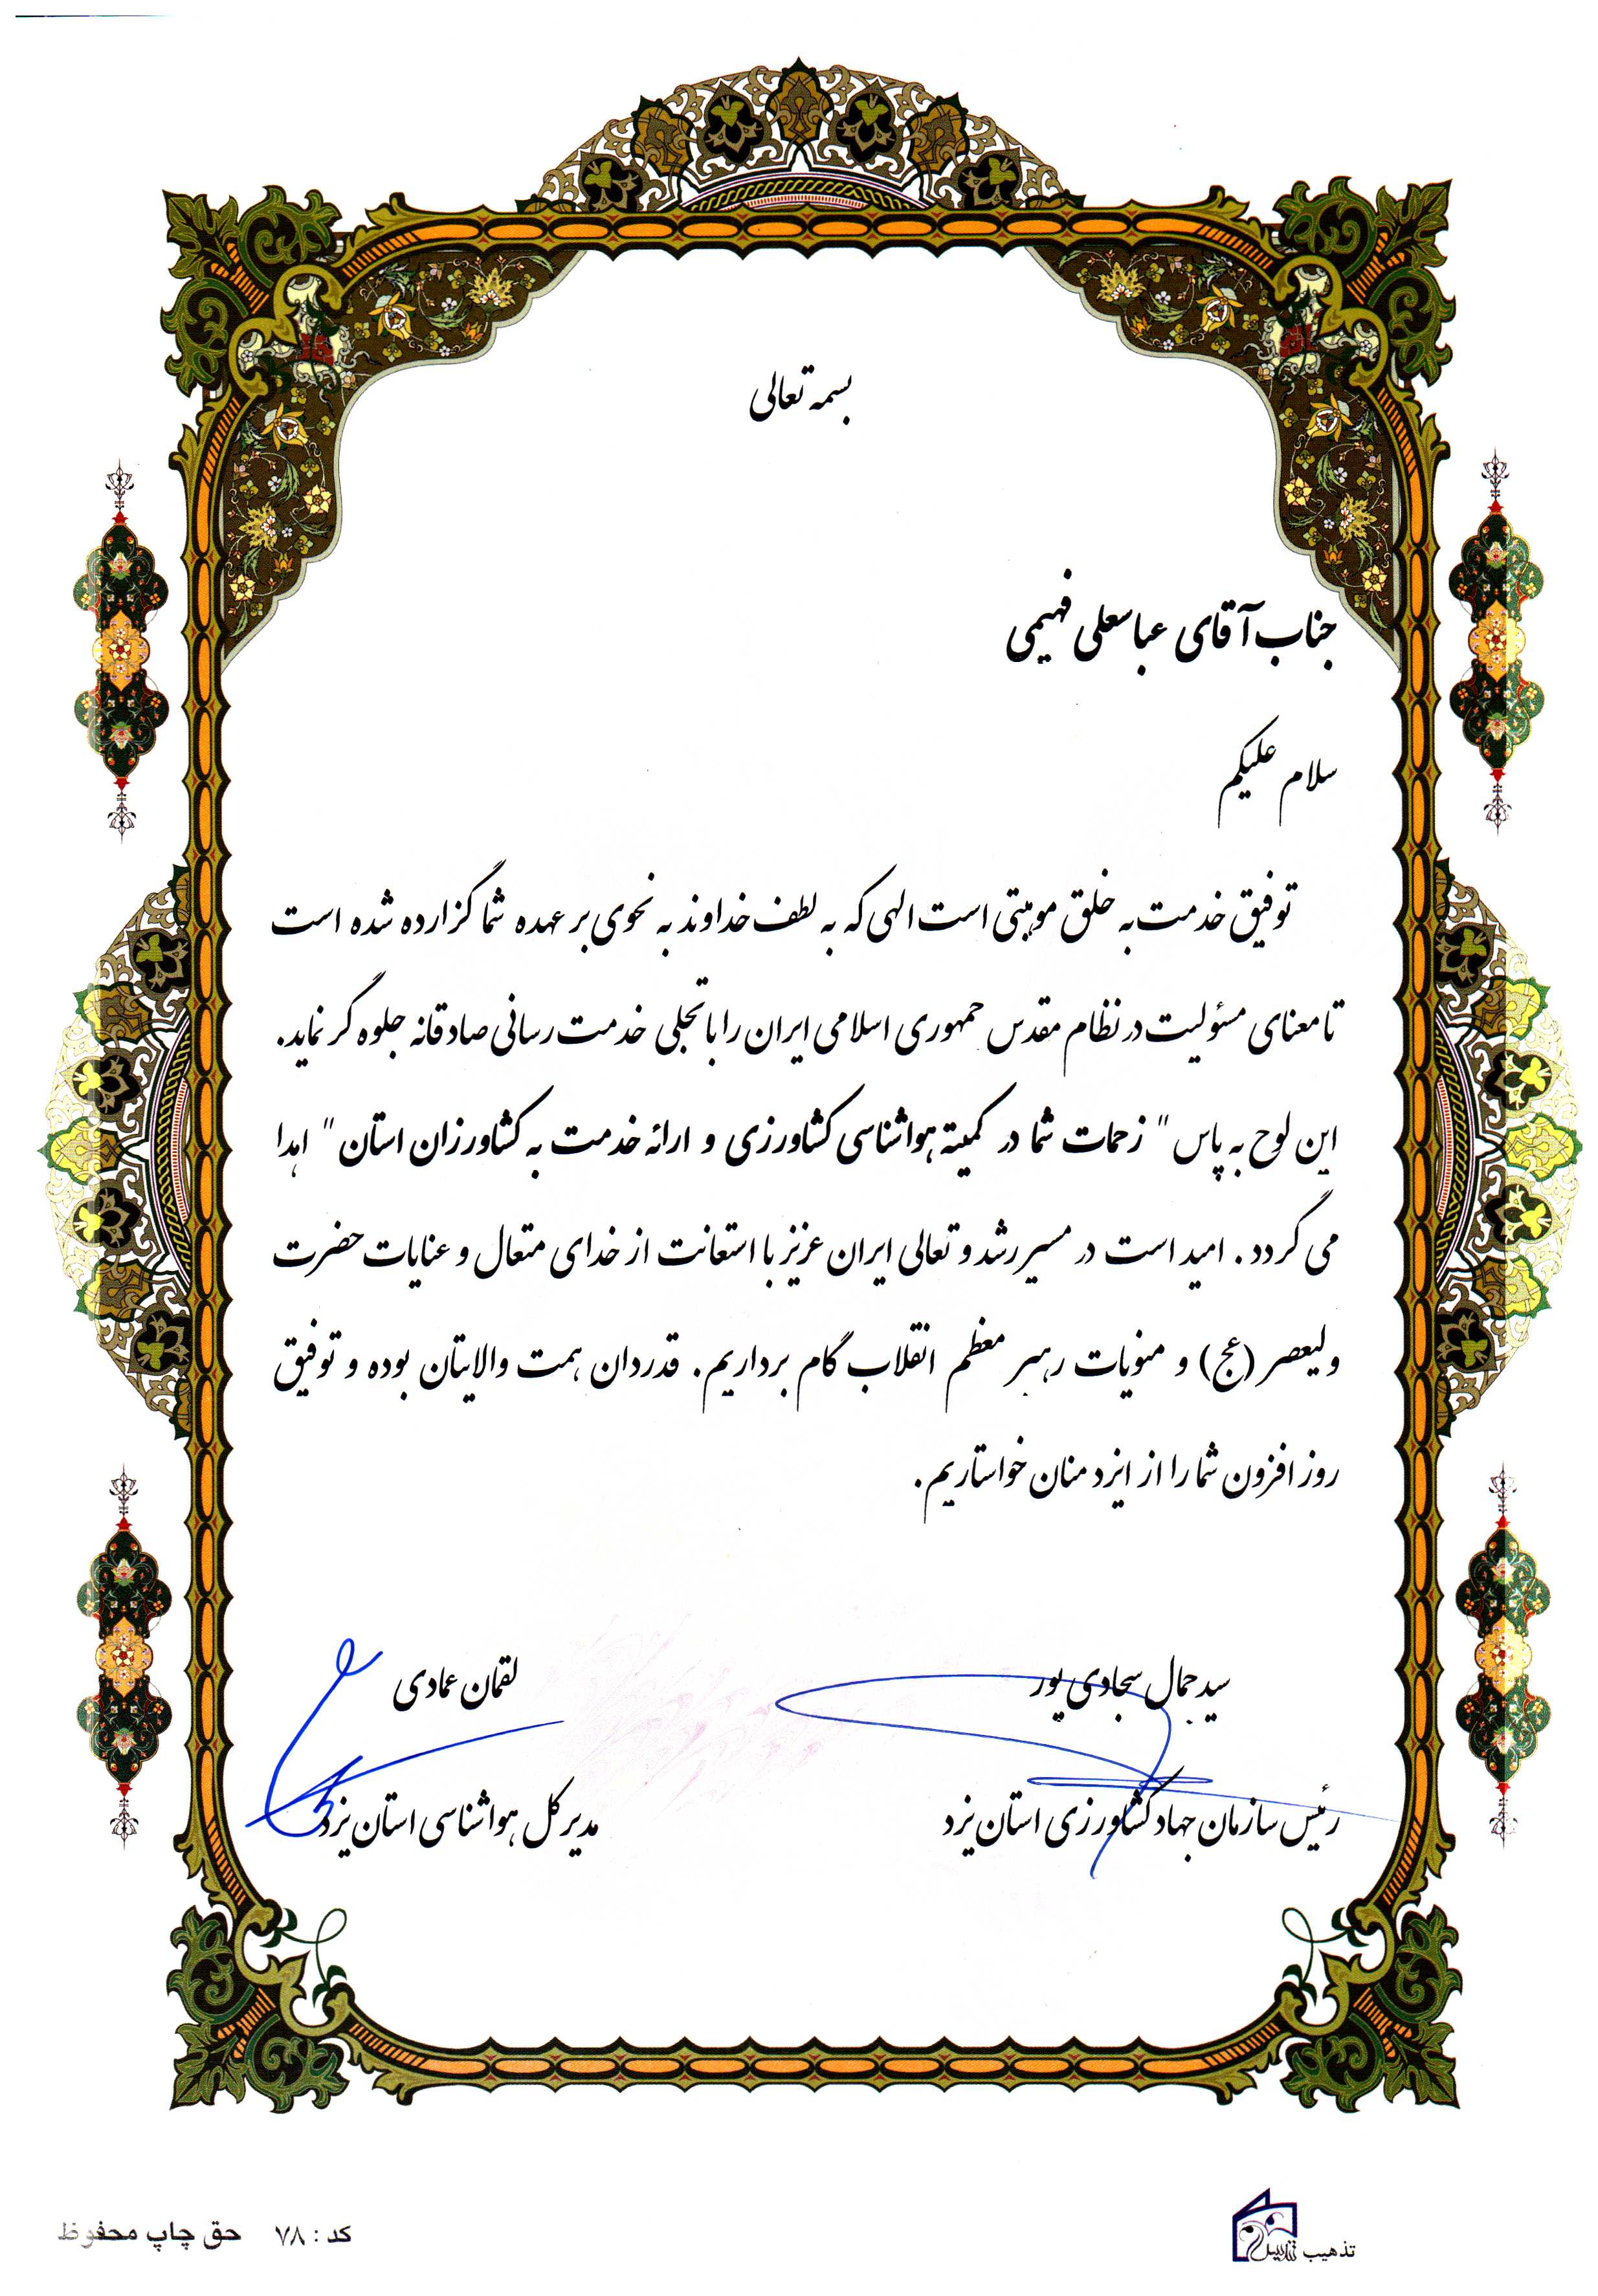 بسمه تعالی
جناب آقای عباسعلی فهیمی
سلام علیکم
توفیق خدمت به خلق موهبتی است الهی که به لطف خداوند به نحوی بر عهده شما گزارده شده است
تا معنای مسئولیت در نظام مقدس جمهوری اسلامی ایران را با تجلی خدمت رسانی صادقانه جلوه گر نماید.
این لوح به پاس " زحمات شما در کمیته هواشناسی کشاورزی و ارائه خدمت به کشاورزان استان " اهدا
می گردد . امید است در مسیر رشد و تعالی ایران عزیز با استعانت از خدای متعال و عنایات حضرت
ولیعصر (عج) و منویات رهبر معظم انقلاب گام برداریم. قدردان همت والایتان بوده و توفیق
روز افزون شما را از ایزد منان خواستاریم.
سید جمال سجادی پور
لقمان عمادی
رئیس سازمان جهاد کشاورزی استان یزد
مدیر کل هواشناسی استان یزد
تذهیب
کد : ۷۸ حق چاپ محفوظ